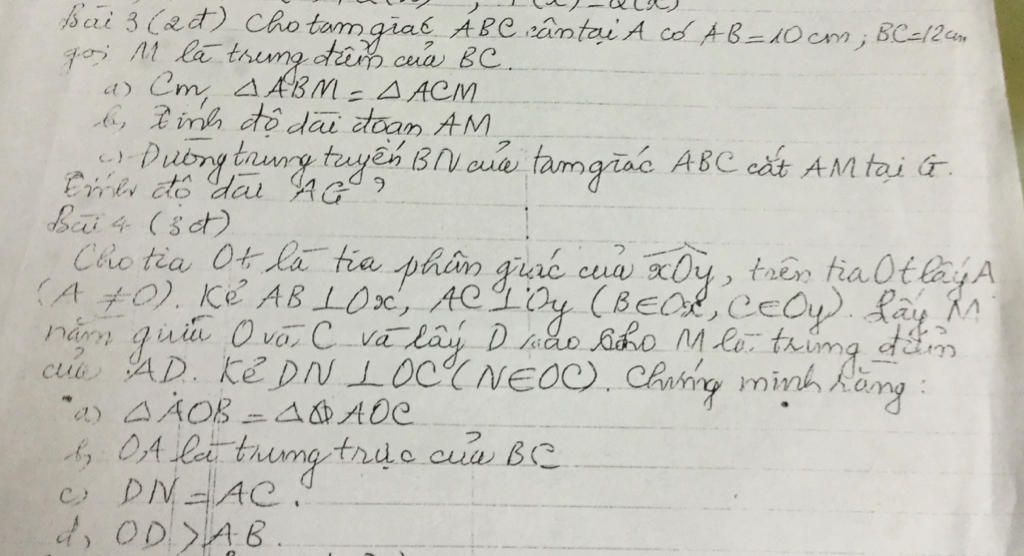 Bài 3 (2đ) Cho tam giác ABC cân tại A có AB = 10 cm ; BC = 12 cm
gọi M là trung điểm của BC.
a) Cm, △ABM = △ACM
b, Tính độ dài đoạn AM
c) Đường trung tuyến BN của tam giác ABC cắt AM tại G.
Tính độ dài AG ?
Bài 4 (3đ)
Cho tia Ot là tia phân giác của xOy, trên tia Ot lấy A
(A ≠ O). Kẻ AB ⊥ Ox, AC ⊥ Oy (B ∈ Ox, C ∈ Oy). Lấy M
nằm giữa O và C và lấy D sao cho M là trung điểm
của AD. Kẻ DN ⊥ OC (N ∈ OC). Chứng minh rằng :
a) △AOB = △AOC
b, OA là trung trực của BC
c) DN = AC.
d, OD > AB.